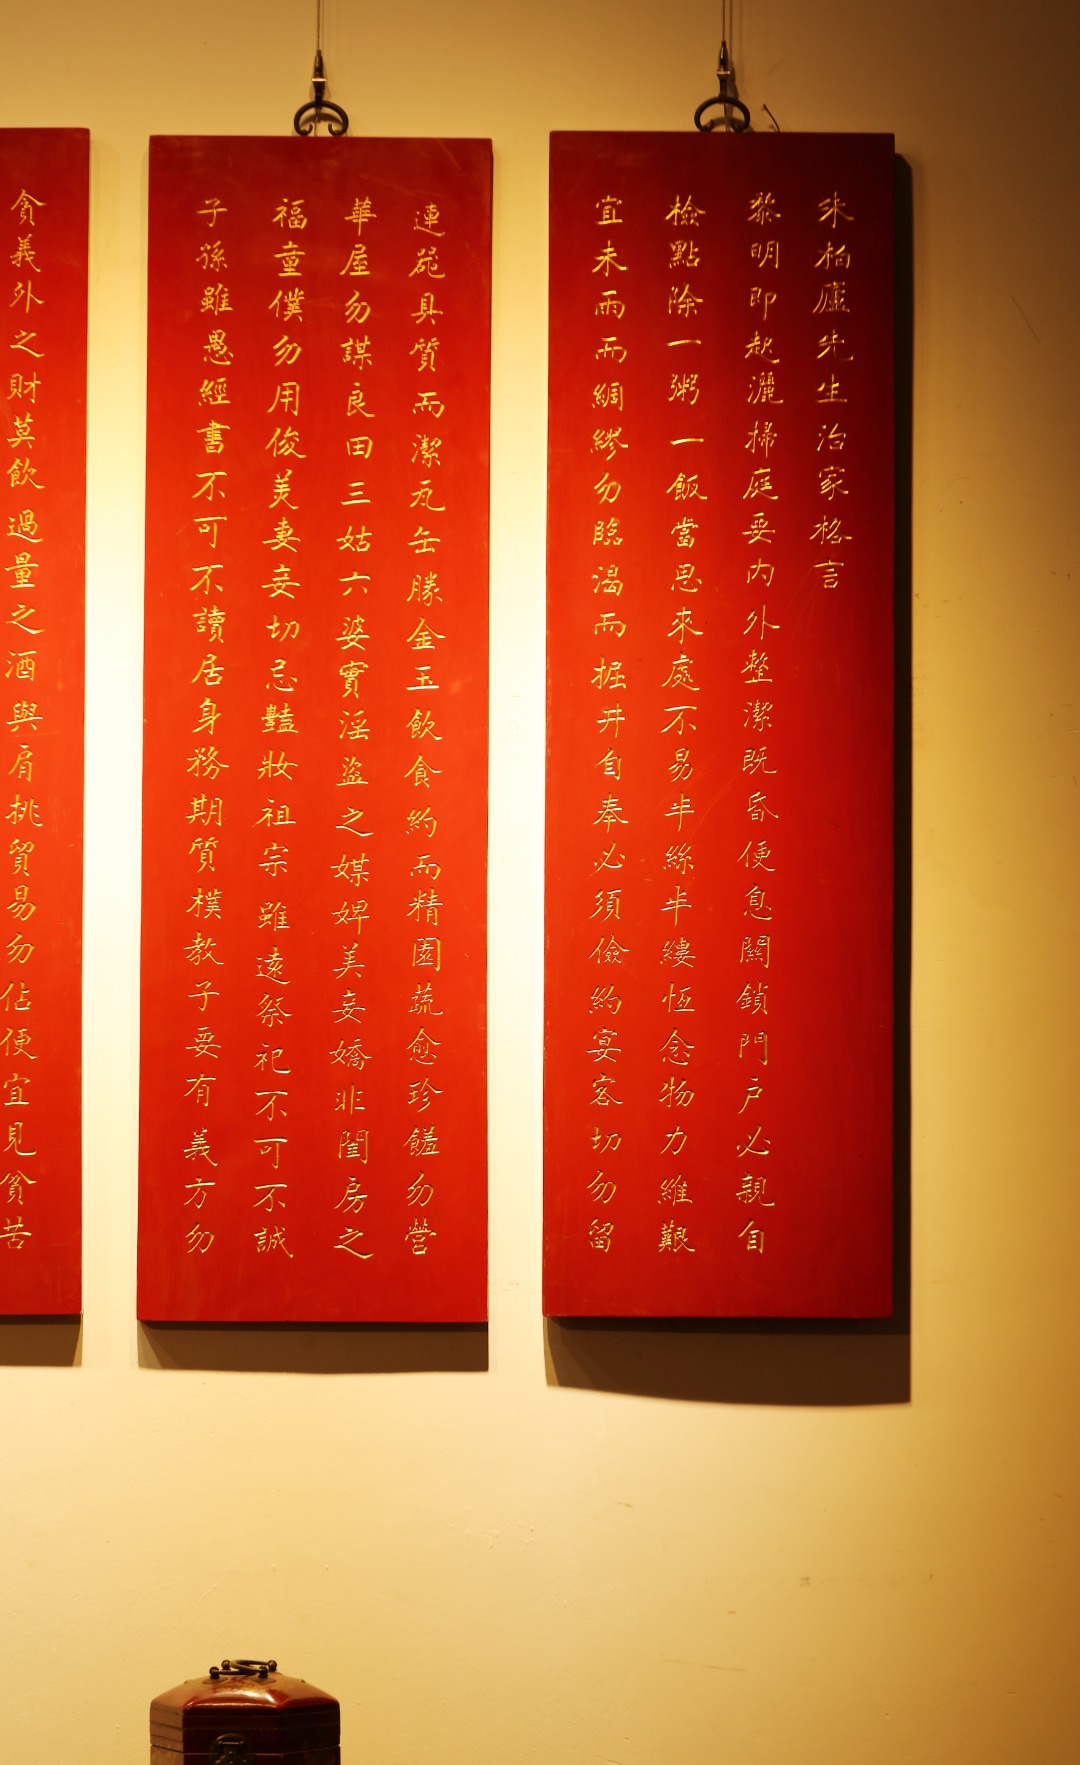 朱柏廬先生治家格言
黎明即起灑掃庭要內外整潔既昏便息關鎖門戶必親自
檢點除一粥一飯當思來處不易半絲半縷恆念物力維艱
宜未雨而綢繆勿臨渴而掘井自奉必須儉約宴客切勿留
連器具質而潔瓦缶勝金玉飲食約而精園蔬愈珍饈勿營
華屋勿謀良田三姑六婆實淫盜之媒婢美妾嬌非閨房之
福童僕勿用俊美妻妾切忌豔妝祖宗雖遠祭祀不可不誠
子孫雖愚經書不可不讀居身務期質樸教子要有義方勿
貪義外之財莫飲過量之酒與肩挑貿易勿佔便宜見貧苦